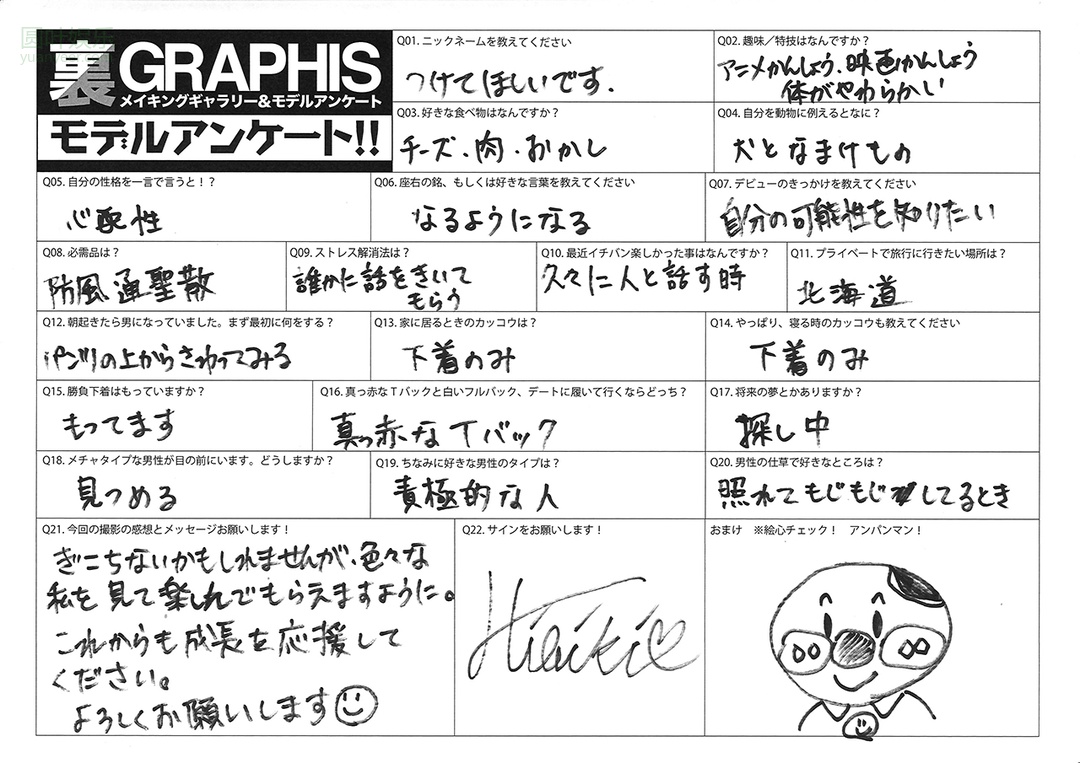 圆叶娱乐
裏GRAPHIS
メイキングギャラリー&モデルアンケート
モデルアンケート!!
Q01. ニックネームを教えてください
つけてほしいです.
Q02. 趣味／特技はなんですか？
アニメかんしょう、映画かんしょう
体がやわらかい
Q03. 好きな食べ物はなんですか？
チーズ、肉・おかし
Q04. 自分を動物に例えるとなに？
犬となまけもの
Q05. 自分の性格を一言で言うと！？
心配性
Q06. 座右の銘、もしくは好きな言葉を教えてください
なるようになる
Q07. デビューのきっかけを教えてください
自分の可能性を知りたい
Q08. 必需品は？
防風通聖散
Q09. ストレス解消法は？
誰かに話をきいて
もらう
Q10. 最近イチバン楽しかった事はなんですか？
久々に人と話す時
Q11. プライベートで旅行に行きたい場所は？
北海道
Q12. 朝起きたら男になっていました。まず最初に何をする？
パンツの上からさわってみる
Q13. 家に居るときのカッコウは？
下着のみ
Q14. やっぱり、寝る時のカッコウも教えてください
下着のみ
Q15. 勝負下着はもっていますか？
もってます
Q16. 真っ赤なTバックと白いフルバック、デートに履いて行くならどっち？
真っ赤なTバック
Q17. 将来の夢とかありますか？
探し中
Q18. メチャタイプな男性が目の前にいます。どうしますか？
見つめる
Q19. ちなみに好きな男性のタイプは？
責極的な人
Q20. 男性の仕草で好きなところは？
照れてもじもじしてるとき
Q21. 今回の撮影の感想とメッセージお願いします！
ぎこちないかもしれませんが、色々な
私を見て楽しんでもらえますように。
これからも成長を応援して
ください。
よろしくお願いします
Q22. サインをお願いします！
Hibiki
おまけ ※絵心チェック！ アンパンマン！